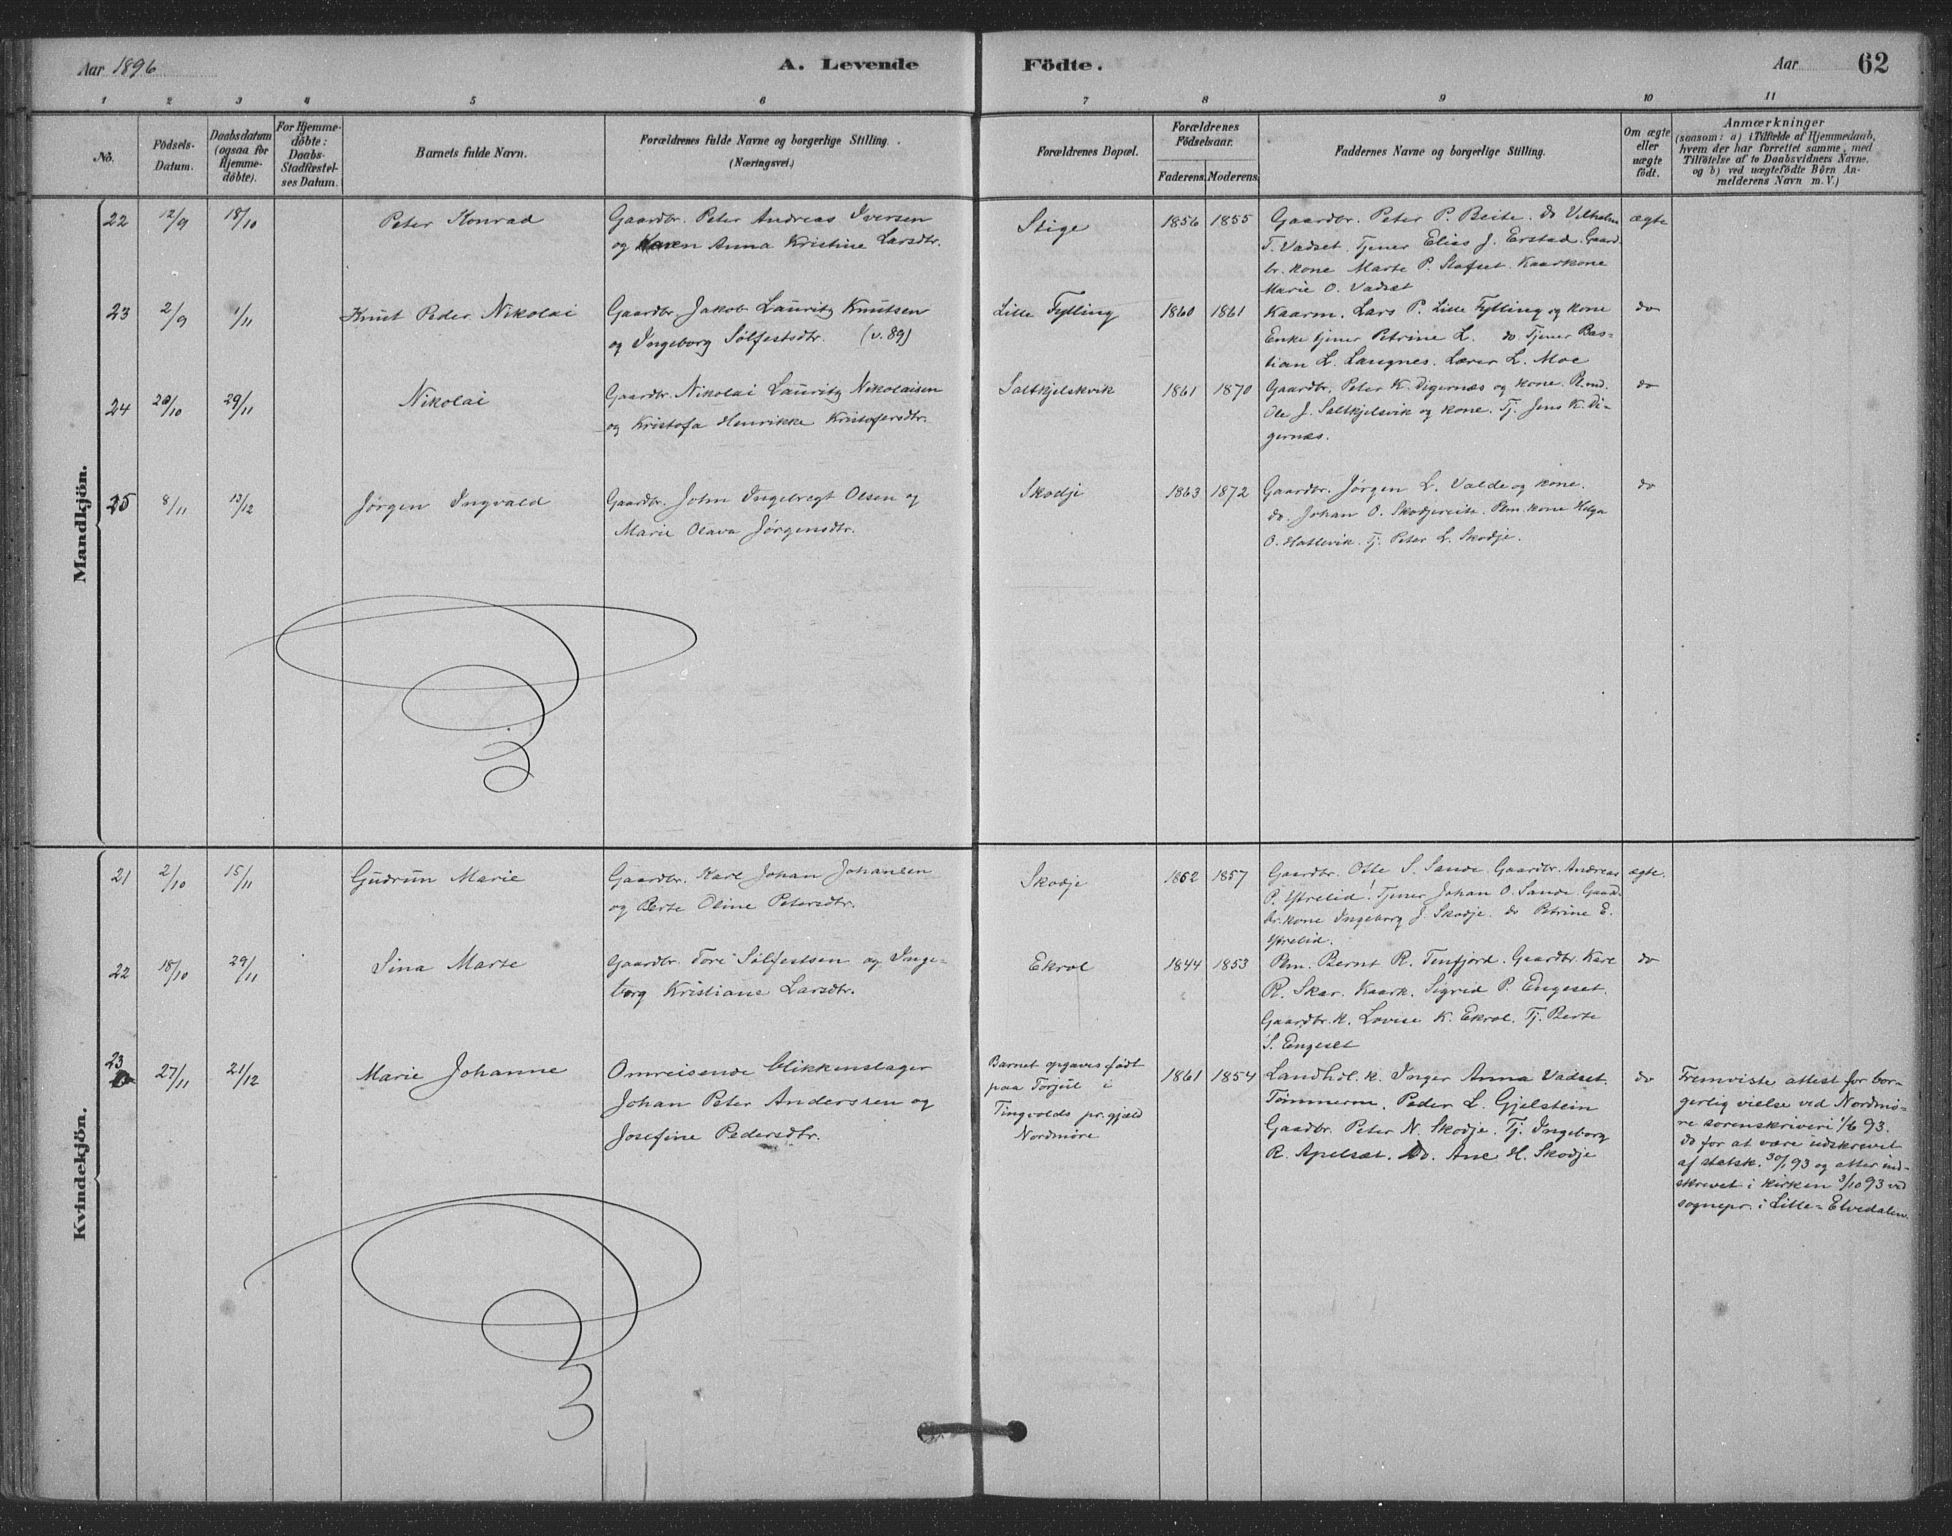 Aar 1896
A. Levende Födte.
Aar
62
1 2 3 4 5 6 7 8 9 10 11
No.
Födsels-
Datum.
Daabsdatum
(ogsaa for
Hjemme-
döbte).
For Hjemme-
döbte:
Daabs-
Stadfæstel-
ses Datum.
Barnets fulde Navn.
Forældrenes fulde Navne og borgerlige Stilling.
(Næringsvei.)
Forældrenes Bopæl.
Forældrenes
Födselsaar.
Faderens. Moderens.
Faddernes Navne og borgerlige Stilling.
Om ægte
eller
uægte
födt.
Anmærkninger
(saasom: a) i Tilfælde af Hjemmedaab,
hvem der har forrettet samme, med
Tilföielse af to Daabsvidners Navne,
og b) ved uægtefödte Börn An-
melderens Navn m. V.)
Mandkjön.
22 12/9 18/10 Peter Konrad
Gaardbr. Peter Andreas Iversen
og Karen Anna Kristine Larsdtr.
Stige 1856 1855
Gaardbr. Peter P. Beite. do Vilhelm
T. Vadset. Tjener Elias J. Erstad. Gaard-
br. kone Marte P. Stafset. Kaarkone
Marie O. Vadset
ægte
23 2/9 1/11 Knut Peder Nikolai
Gaardbr. Jakob Lauritz Knutsen
og Ingeborg Sølfestsdtr. (v. 89)
Lille Fylling 1860 1861
Kaarm. Lars P. Lille Fylling og kone
Enke tjener Petrine L. do Tjener Bas-
tian L. Langnes. Lærer L. Moe
do
24 20/10 29/11 Nikolai
Gaardbr. Nikolai Lauritz Nikolaisen
og Kristofa Henrikke Kristofersdtr.
Saltkjelskvik 1861 1870
Gaardbr. Peter K. Digernæs og kone. Pl.md.
Ole J. Saltkjelsvik og kone. Tj. Jens K. Di-
gernæs.
do
25 8/11 13/12 Jørgen Ingvald
Gaardbr. John Ingebregt Olsen og
Marie Olava Jørgensdtr.
Skodje 1863 1872
Gaardbr. Jørgen L. Valde og kone.
do. Johan O. Skodjereite. Pem. kone Helga
O. Hatlevik. Tj. Peter L. Skodje.
do
Kvindekjön.
21 2/10 15/11 Gudrun Marie
Gaardbr. Karl Johan Johansen
og Berte Oline Petersdtr.
Skodje 1862 1857
Gaardbr. Olle S. Sande. Gaardbr. Andreas
P. Ytrelid. Tjener Johan O. Sande. Gaard-
br. kone Ingeborg J. Skodje. do Petrine E.
Ytrelid.
ægte.
22 18/10 29/11 Sina Marte
Gaardbr. Tore Sølfestsen og Inge-
borg Kristiane Larsdtr.
Ekrol 1844 1853
Pem. Bernt R. Tenfjord. Gaardbr. Kare
R. Skar. Kaark. Sigrid P. Engeset.
Gaardbr. k. Lovise K. Ekrol. Tj. Berte
S. Engeset
do
23 27/11 21/12 Marie Johanne
Omreisende blikkenslager
Johan Peter Anderssen og
Josefine Pedersdtr.
Barnet opgaves født
paa Torjul i
Tingvolds pr.gjæld
Nordmøre
1861 1854
Landhdl. k. Inger Anna Vadset.
Tømmerm. Peder L. Gjelstein
Gaardbr. Peter N. Skodje. Tj. Ingeborg
R. Apelsæt. Do. Ane H. Skodje
do
Fremviste attest for bor-
gerlig vielse ved Nordmø-
re sorenskriveri 1/6 93.
do for at være udskrevet
af statsk. 30/1 93 og atter ind-
skrevet i kirken 3/10 93 ved
sognepr. i Lille-Elvedalen.